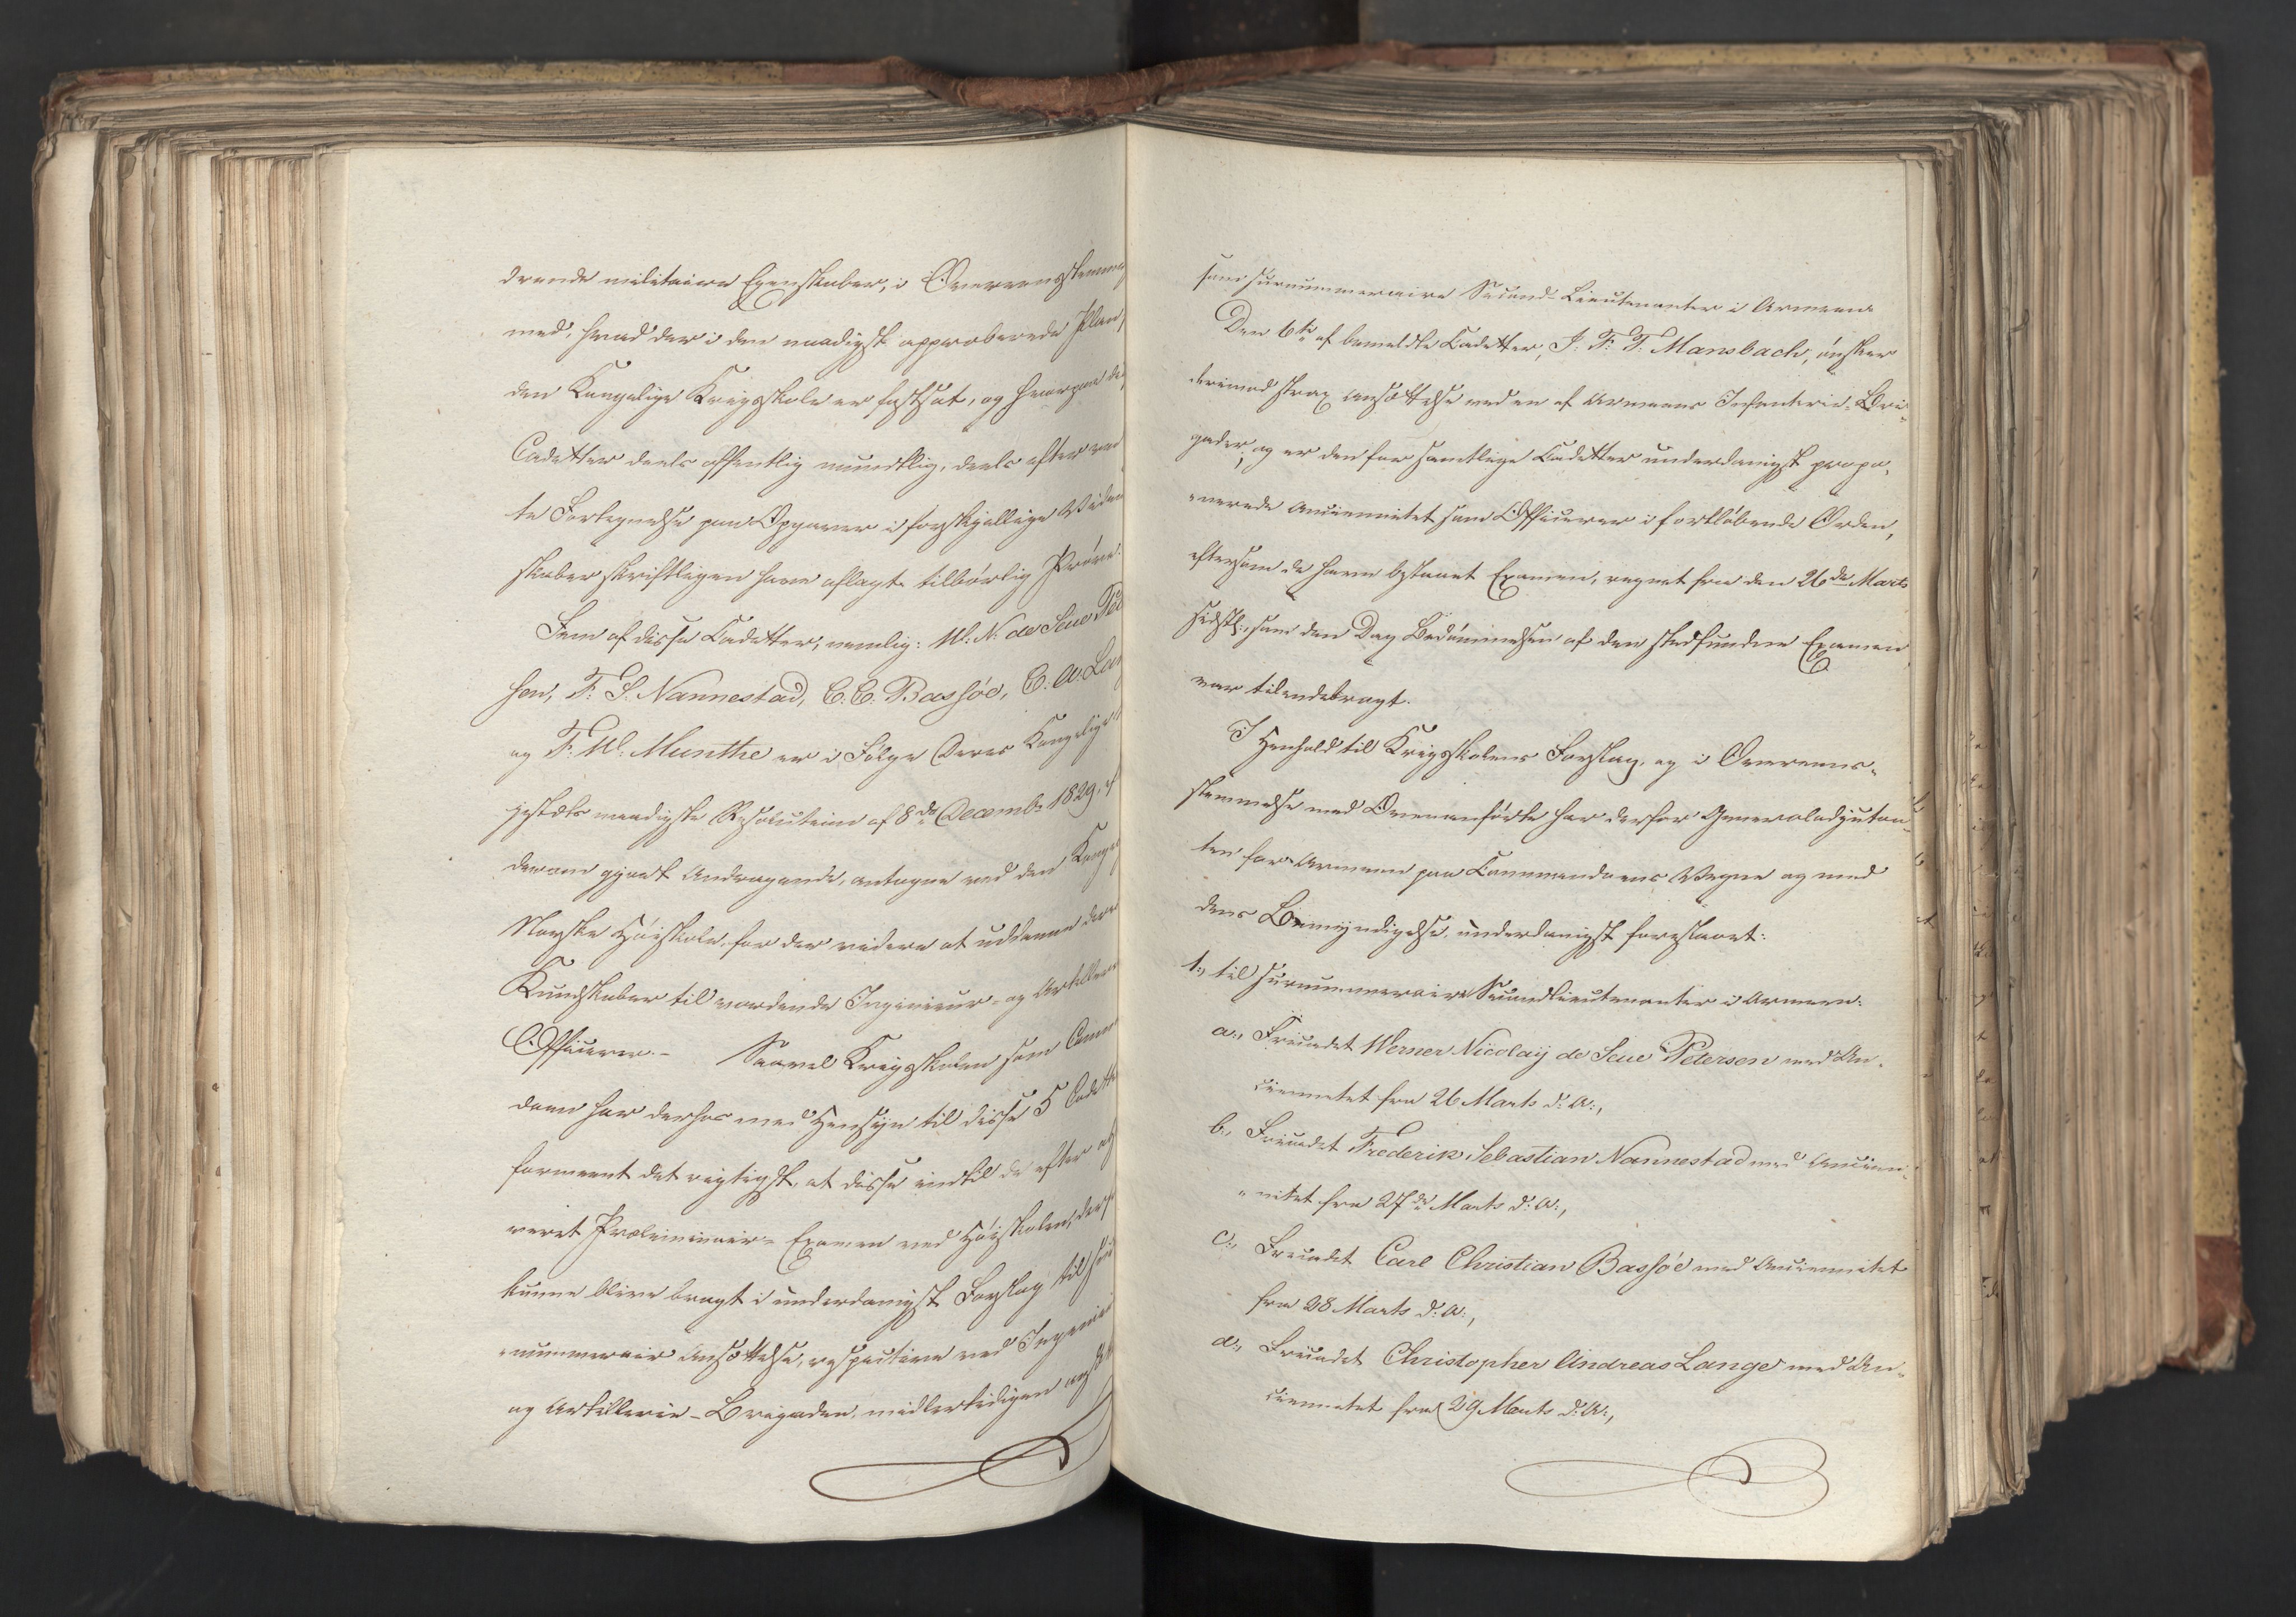 drende militaire Egenskaber, i Overensstemme
med, hvad der i den naadigst approberede Plan,
den Kongelige Krigsskole er fastsat, og hvorpaa de
Cadetter deels offentlig mundtlig, deels efter
te Fortegnelse paa Opgaver i forskjellige Viden
skaber skriftligen have aflagt tilbørlig Prøve.
Fem af disse Cadetter, nemlig: W: N: de Seue Pet
sen, F: S. Nannestad, C. C. Bassøe, C. A. Lan
og F: W: Munthe er i Følge Deres Kongelige
jestæts naadigste Resolution af 8de Decembr 1829, ef
derom gjort Andragende, antagne ved den Konge
Norske Høiskole, for der videre at uddanne dere
Kundskaber til vordende Ingenieur- og Artilleri
Officerer.- Saavel Krigsskolen som Comm
doen har derhos med Hensyn til disse 5 Cadett
formeent det rigtigst, at disse indtil de efter
veret Præliminair-Examen ved Høiskolen, der
kunne blive bragt i underdanigst Forslag til
nummerair Ansættelse, respective ved Ingenieu
og Artillerie-Brigaden, midlertidigen
som surnummeraire Second-Lieutenanter i Armeen.
Den 6te af bemeldte Cadetter, J: F: T: Mansbach, ønsker
derimod strax Ansættelse ved en af Armeens Infanterie-Bri-
gader, og er den for samtlige Cadetter underdanigst propo-
nerede Anciennitet som Officerer i fortløbende Orden,
eftersom de have bestaaet Examen, regnet fra den 26de Marts
sidstl:, som den Dag Bedømmelsen af den stedfundne Examen
var tilendebragt.
I Henhold til Krigsskolens Forslag, og i Overeens-
stemmelse med Ovenanførte har derfor Generaladjutan-
ten for Armeen paa Commandoens Vegne og med
dens Bemyndigelse, underdanigst foreslaaet:
1:, til surnummeraire Secondlieutenanter i Armeen:
a:, Fricadet Werner Nicolaij de Seue Petersen med An-
ciennetet fra 26 Marts d: A:,
b:, Fricadet Frederik Sebastian Nannestad med Ancien-
nitet fra 27de Marts d: A:,
c:, Fricadet Carl Christian Bassøe med Anciennitet
fra 28 Marts d: A:,
d:, Fricadet Christopher Andreas Lange med An-
ciennetet fra 29 Marts d: A:,